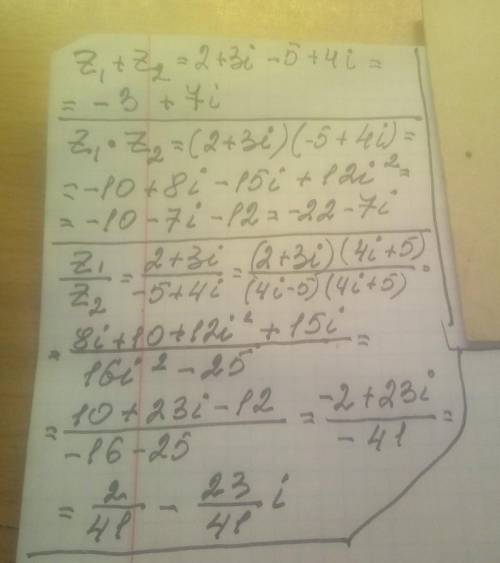 Z₁ + Z₂ = 2+3i -5+4i =
= -3 +7i
Z₁ · Z₂ = (2+3i)(-5+4i) =
= -10 + 8i - 15i + 12i² =
= -10 - 7i - 12 = -22 - 7i
Z₁/Z₂ = (2+3i)/(-5+4i) = ((2+3i)(4i+5))/((4i-5)(4i+5)) =
= (8i+10+12i²+15i)/(16i²-25) =
= (10+23i-12)/(-16-25) = (-2+23i)/(-41) =
= 2/41 - 23/41 i